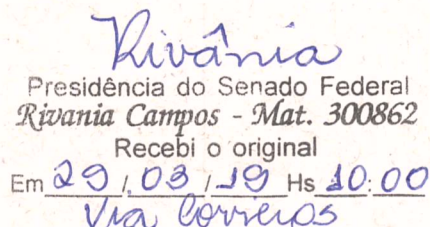 Rivânia
Presidência do Senado Federal
Rivania Campos - Mat. 300862
Recebi o original
Em 29 / 03 / 19 Hs 10:00
Via Correios